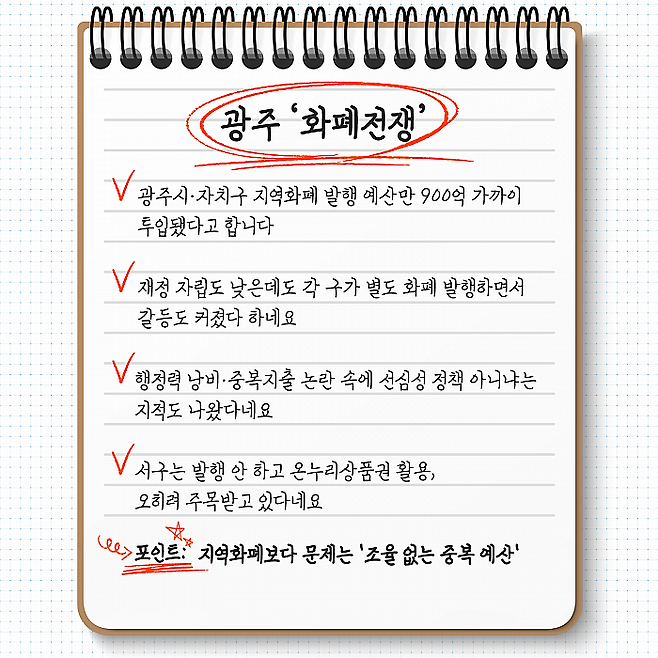 광주 ‘화폐전쟁’
광주시·자치구 지역화폐 발행 예산만 900억 가까이
투입됐다고 합니다
재정 자립도 낮은데도 각 구가 별도 화폐 발행하면서
갈등도 커졌다 하네요
행정력 낭비·중복지출 논란 속에 선심성 정책 아니냐는
지적도 나왔다네요
서구는 발행 안 하고 온누리상품권 활용,
오히려 주목받고 있다네요
포인트: 지역화폐보다 문제는 '조율 없는 중복 예산'